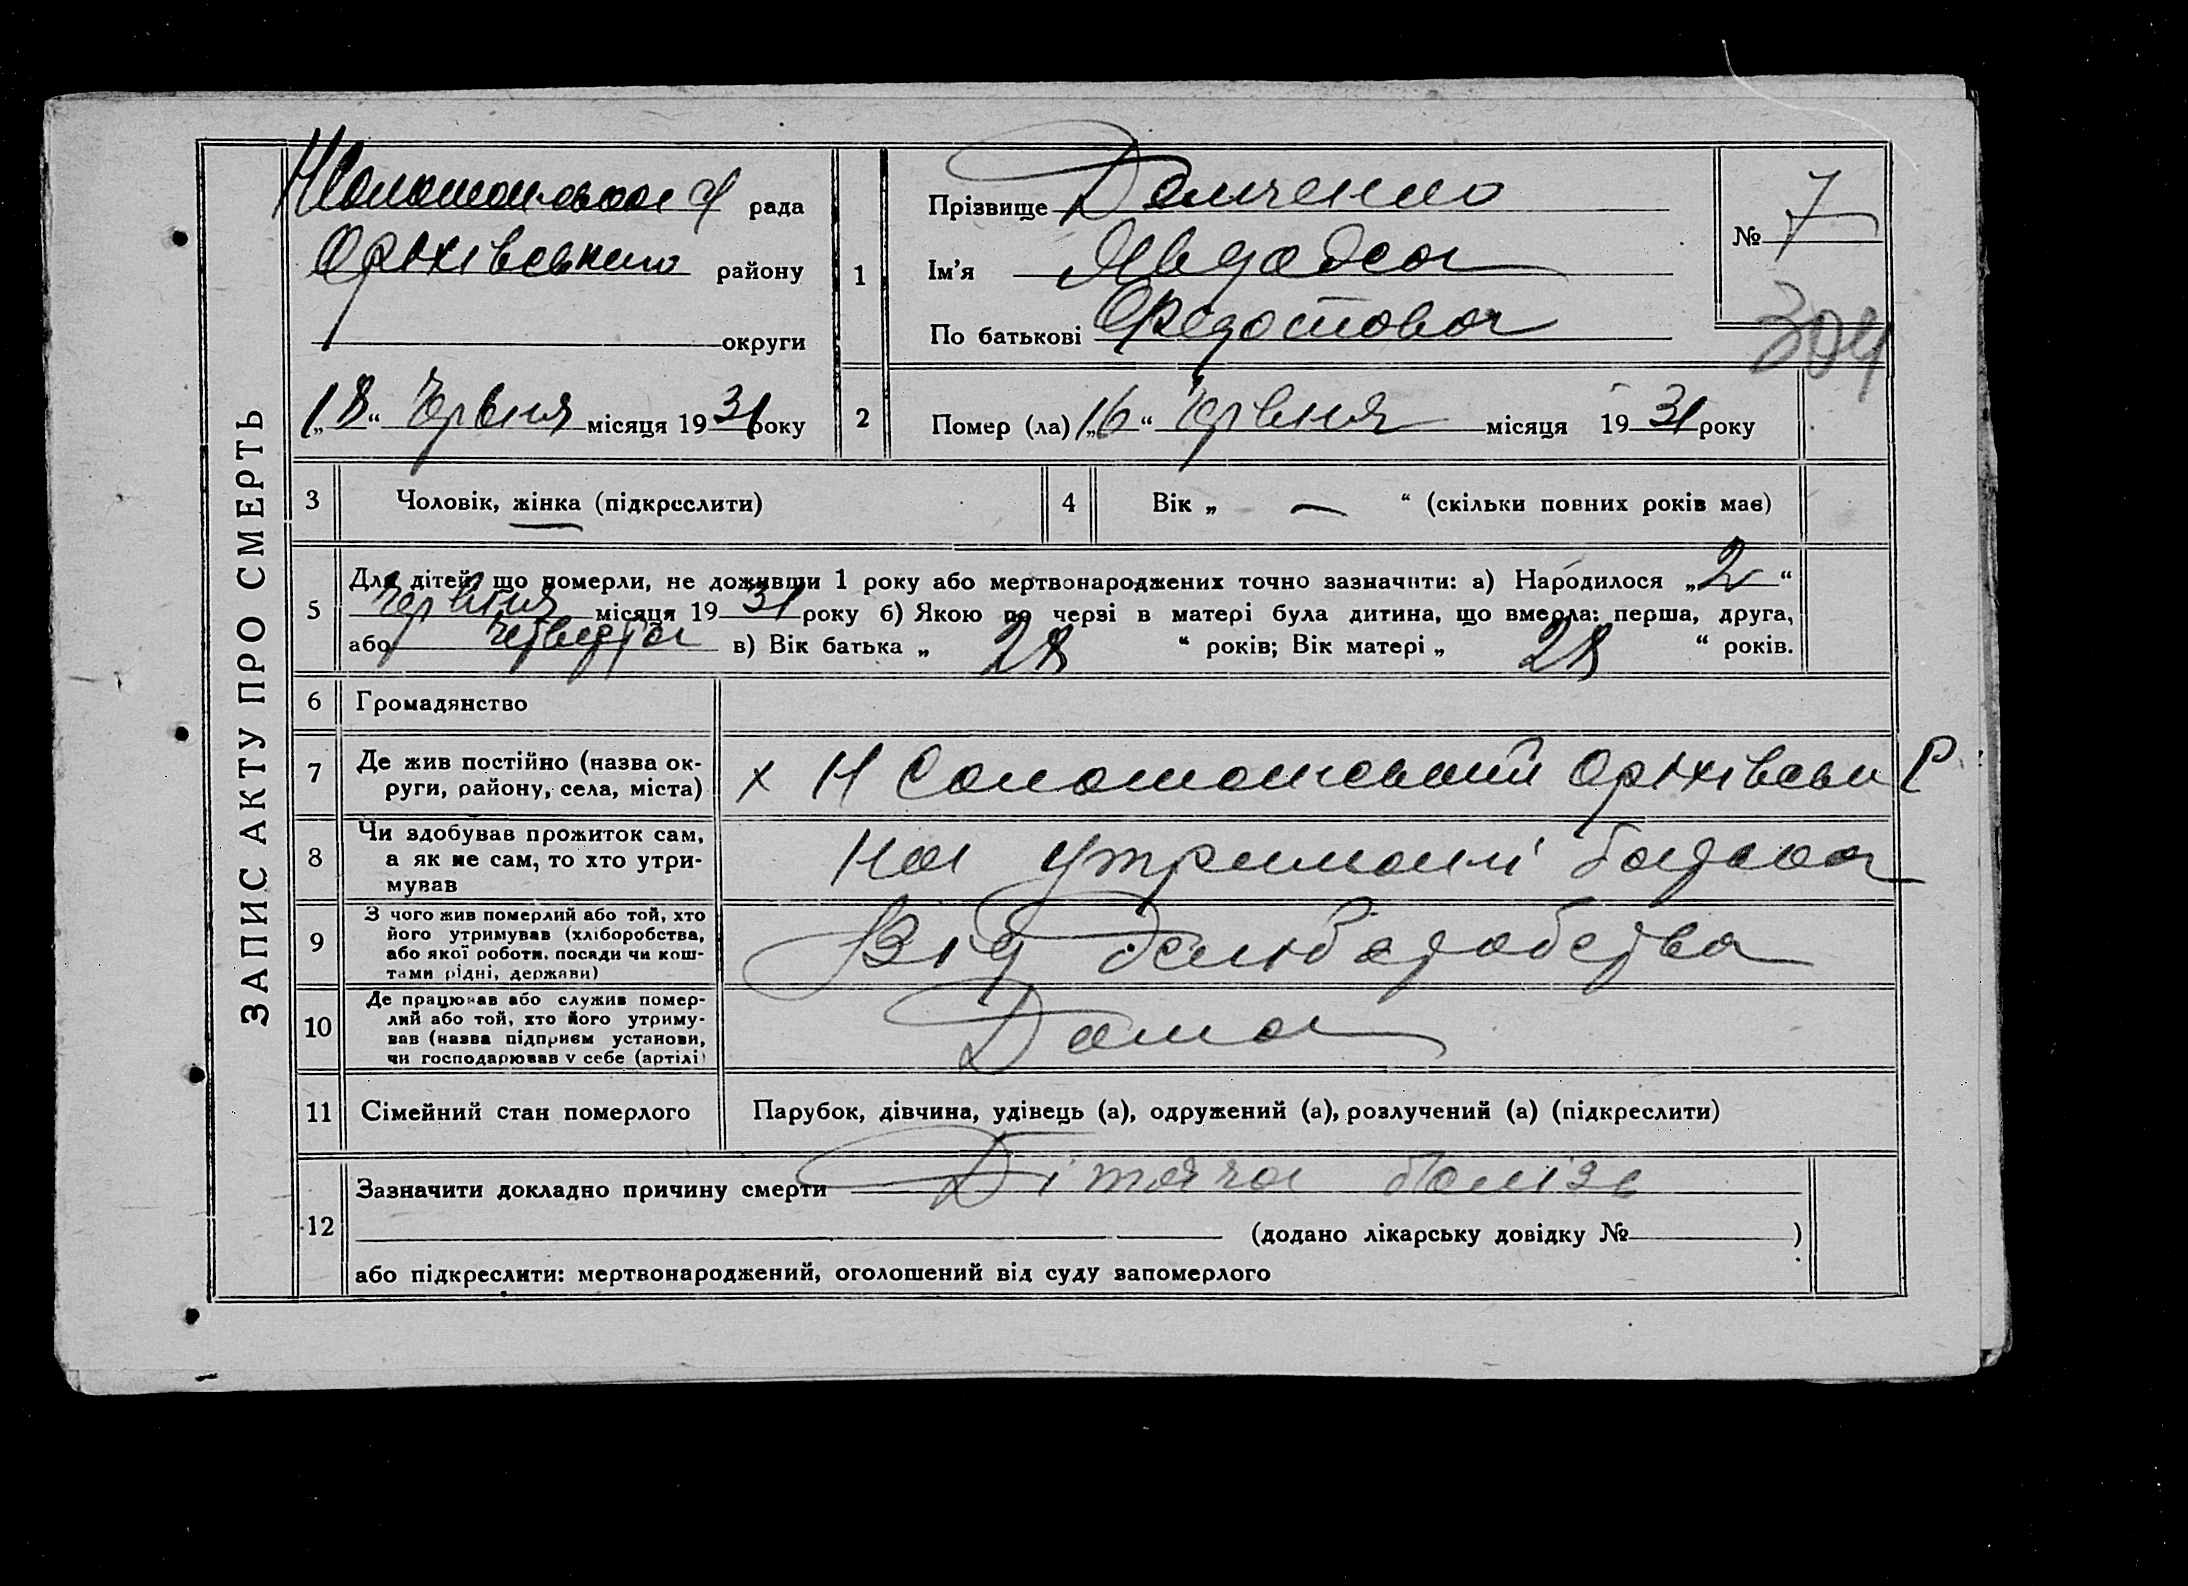 ЗАПИС АКТУ ПРО СМЕРТЬ
рада
Оріхівського району
округи
„18“ Червня місяця 1931 року
1
Прізвище Демченко
Ім'я Явдокся
По батькові Федотова
№ 7
304
2
Помер (ла) „16“ Червня місяця 1931 року
3 Чоловік, жінка (підкреслити)
4 Вік „ — “ (скільки повних років має)
5 Для дітей, що померли, не доживши 1 року або мертвонароджених точно зазначити: а) Народилося „2“
Червня місяця 1931 року б) Якою по черзі в матері була дитина, що вмерла: перша, друга,
або четверта в) Вік батька „28“ років; Вік матері „28“ років.
6 Громадянство
7 Де жив постійно (назва округи, району, села, міста) х Н Соломонський Оріхівськ Р.
8 Чи здобував прожиток сам,
а як не сам, то хто утри-
мував
На утриманні батька
9 З чого жив померлий або той, хто
його утримував (хліборобства,
або якої роботи, посади чи кош-
тами рідні, держави)
Від
10 Де працював або служив помер-
лий або той, хто його утриму-
вав (назва підприєм установи,
чи господарював у себе (артілі)
Дома
11 Сімейний стан померлого Парубок, дівчина, удівець (а), одружений (а), розлучений (а) (підкреслити)
12 Зазначити докладно причину смерти Дітяча болізь
(додано лікарську довідку № )
або підкреслити: мертвонароджений, оголошений від суду запомерлого